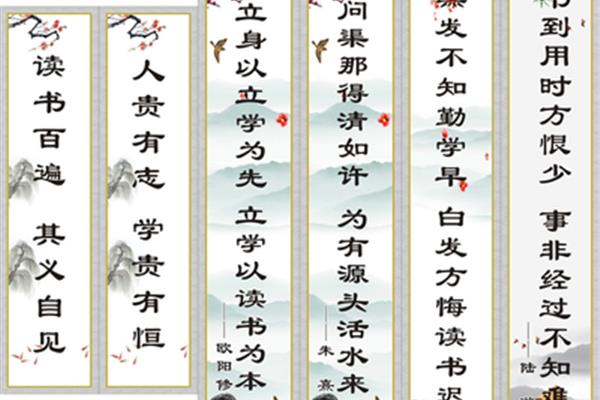 读书百遍 其义自见
人贵有志 学贵有恒
立身以立学为先 立学以读书为本
——欧阳修
问渠那得清如许 为有源头活水来
——朱熹
黑发不知勤学早 白发方悔读书迟
书到用时方恨少 事非经过不知难
——陆游